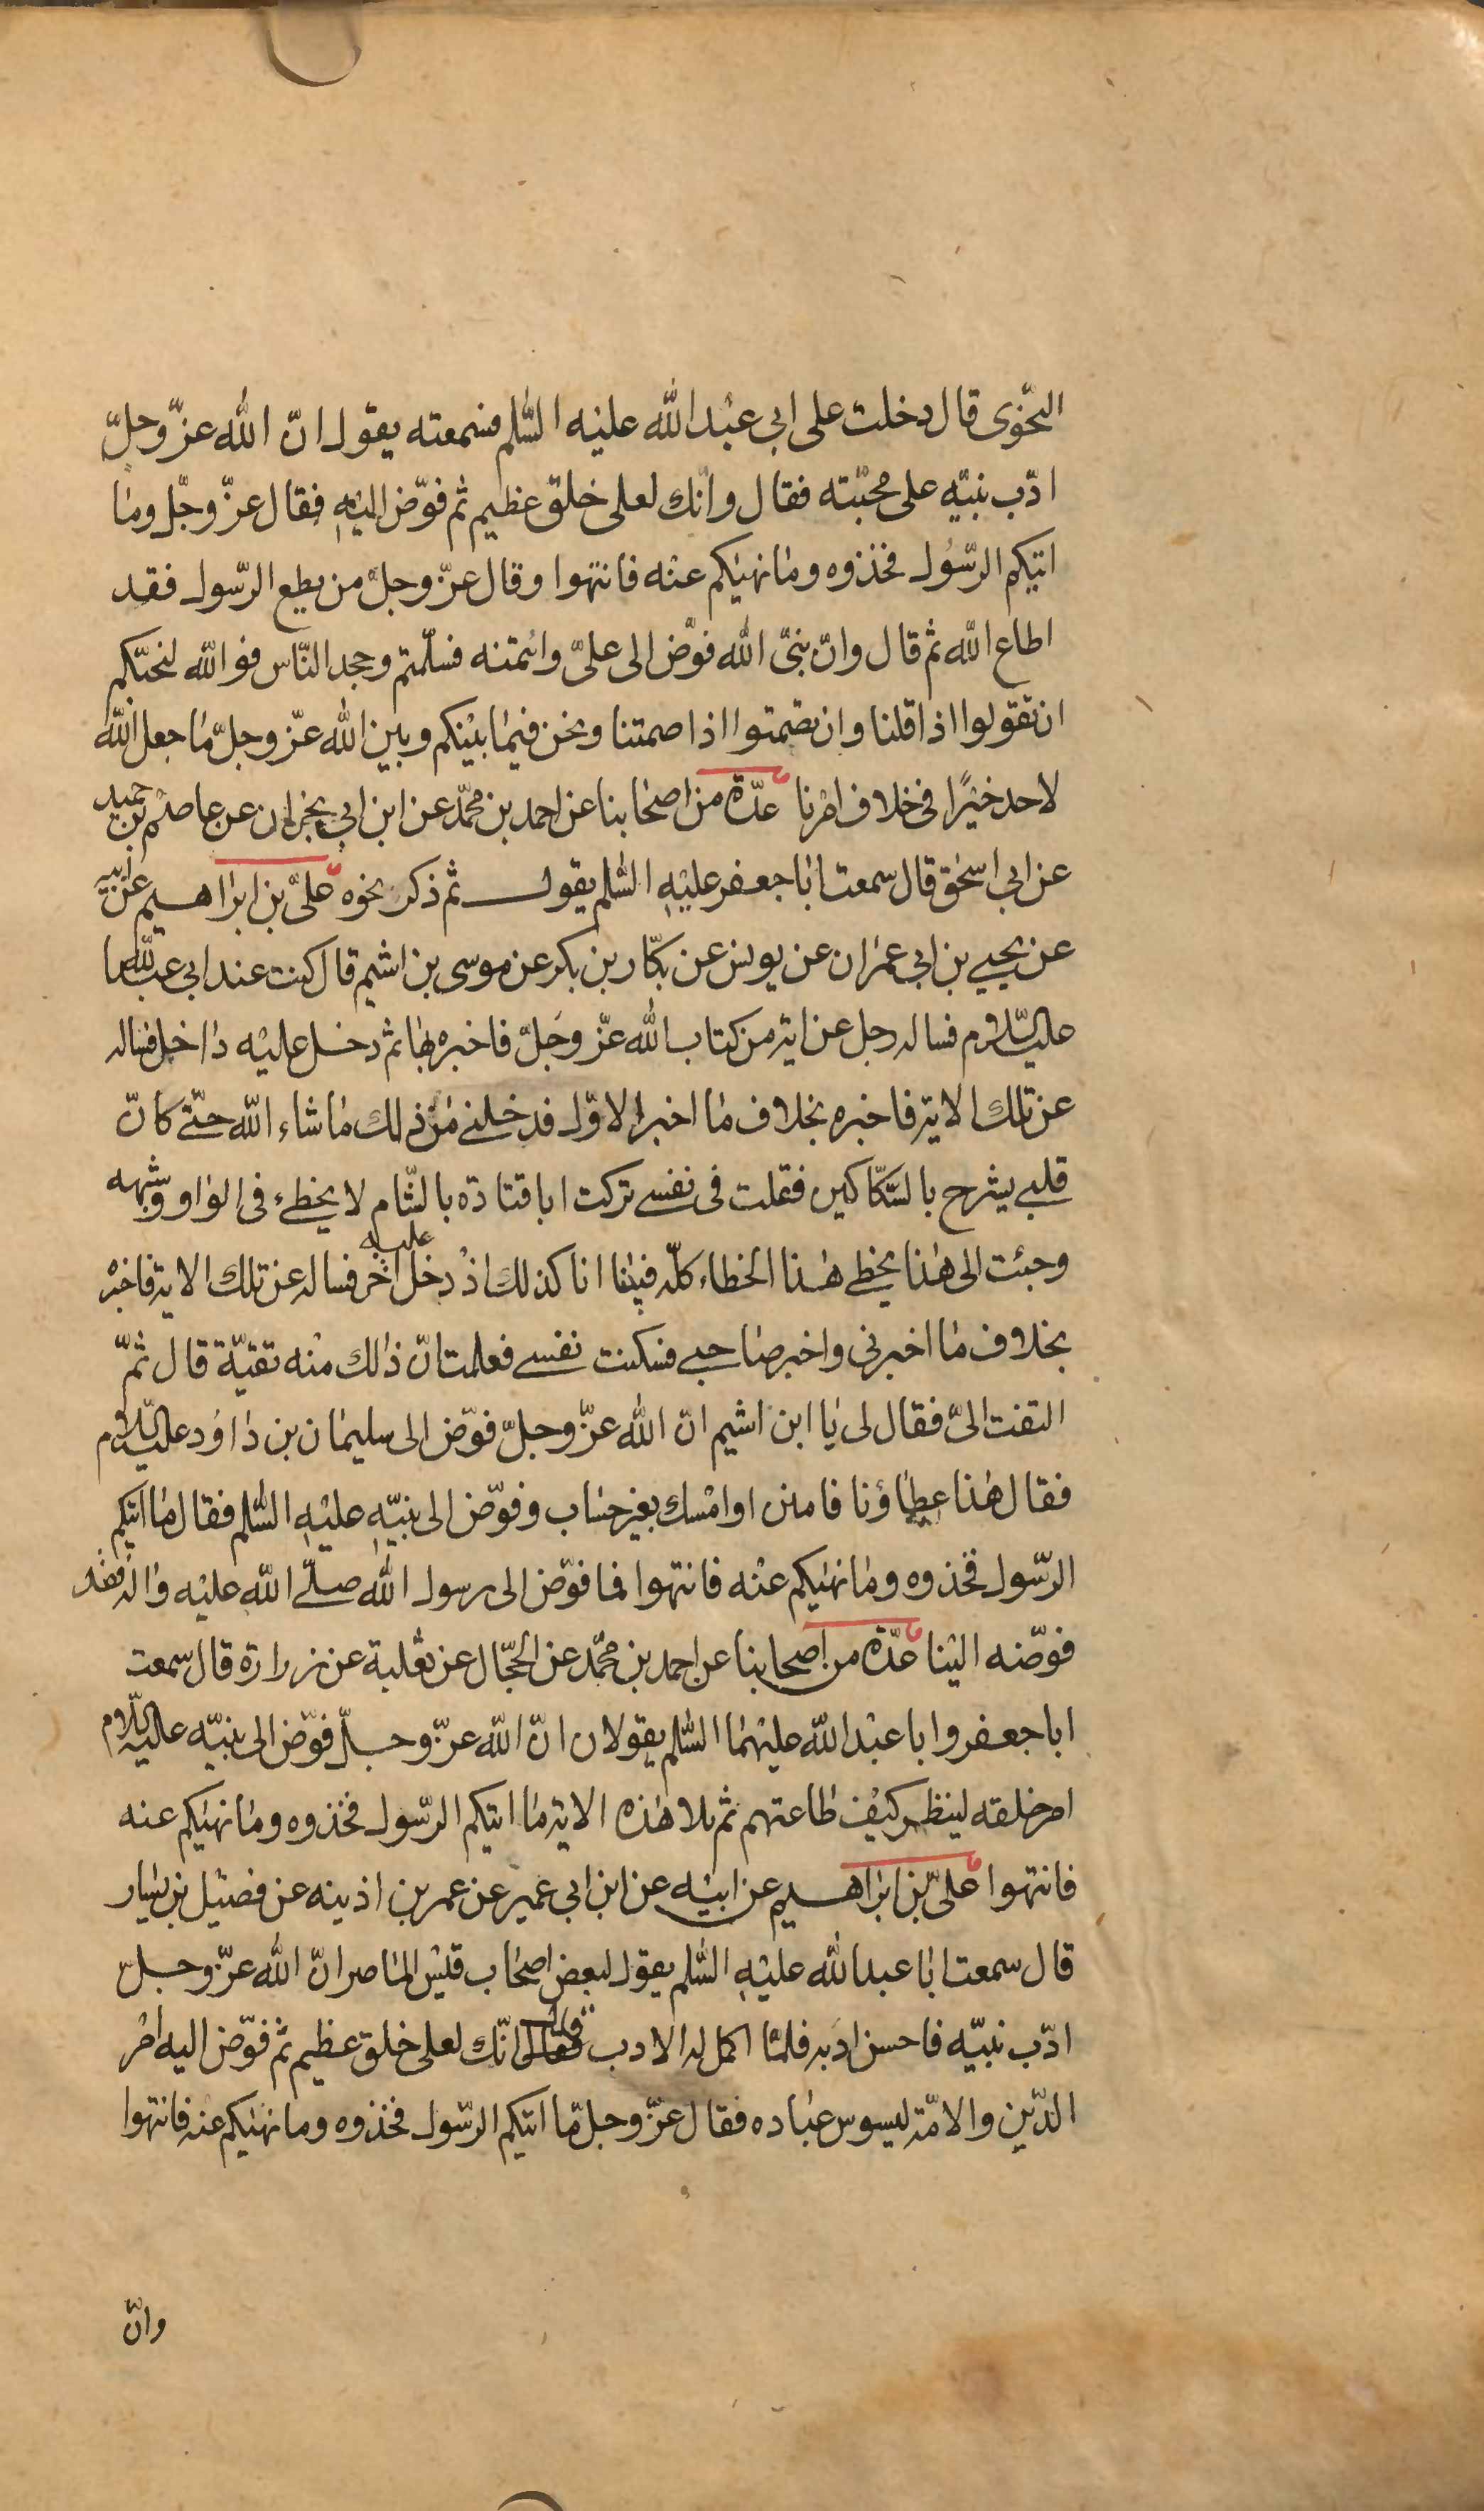 النّحوى قال دخلت على ابى عبد الله عليه السّلم فسمعته يقول انّ الله عزّ وجلّ
ادّب نبيّه على محبّته فقال وانّك لعلى خلق عظيم ثم فوّض اليه فقال عزّ وجلّ وما
اتيكم الرّسول فخذوه وما نهيكم عنه فانتهوا وقال عزّ وجلّ من يطع الرّسول فقد
اطاع الله ثم قال وانّ نبىّ الله فوّض الى علىّ وائمتنه فسلّمتم وجحد النّاس فو الله لنحبّكم
ان تقولوا اذا قلنا وان تصمتوا اذا صمتنا ونحن فيما بينكم وبين الله عزّ وجلّ ما جعل الله
لاحد خيرًا فى خلاف امرنا عدّة من اصحابنا عن احمد بن محمّد عن ابن ابى نجران عن عاصم بن حميد
عن ابى اسحق قال سمعت ابا جعفر عليه السّلم يقول ثم ذكر نحوه علىّ بن ابراهيم عن ابيه
عن يحيى بن ابى عمران عن يونس عن بكّار بن بكر عن موسى بن اشيم قال كنت عند ابى عبد الله
عليه السّلام فساله رجل عن اية من كتاب الله عزّ وجلّ فاخبره بها ثم دخل عليه داخل فساله
عن تلك الاية فاخبره بخلاف ما اخبر الاوّل فدخلنى من ذلك ما شاء الله حتّى كانّ
قلبى يشرح بالسّكاكين فقلت فى نفسى تركت ابا قتادة بالشّام لا يخطىء فى الواو وشبهه
وجئت الى هذا يخطى هذا الخطاء كلّه فبينا انا كذلك اذ دخل عليه اخر فساله عن تلك الاية فاخبره
بخلاف ما اخبرنى واخبر صاحبى فسكنت نفسى فعلمت انّ ذلك منه تقيّة قال ثمّ
التفت الىّ فقال لى يا ابن اشيم انّ الله عزّ وجلّ فوّض الى سليمان بن داود عليه السّلام
فقال هذا عطاؤنا فامنن او امسك بغير حساب وفوّض الى نبيّه عليه السّلم فقال ما اتيكم
الرّسول فخذوه وما نهيكم عنه فانتهوا فما فوّض الى رسول الله صلّى الله عليه واله فقد
فوّضه الينا عدّة من اصحابنا عن احمد بن محمّد عن الحجّال عن ثعلبة عن زرارة قال سمعت
ابا جعفر وابا عبد الله عليهما السّلم يقولان انّ الله عزّ وجلّ فوّض الى نبيّه عليه السّلام
امر خلقه لينظر كيف طاعتهم ثم تلا هذه الاية ما اتيكم الرّسول فخذوه وما نهيكم عنه
فانتهوا علىّ بن ابراهيم عن ابيه عن ابن ابى عمير عن عمر بن اذينه عن فضيل بن يسار
قال سمعت ابا عبد الله عليه السّلم يقول لبعض اصحاب قيس الماصر انّ الله عزّ وجل
ادّب نبيّه فاحسن ادبه فلمّا اكمل له الادب قال انّك لعلى خلق عظيم ثم فوّض اليه امر
الدّين والامّة ليسوس عباده فقال عزّ وجلّ ما اتيكم الرّسول فخذوه وما نهيكم عنه فانتهوا
وانّ